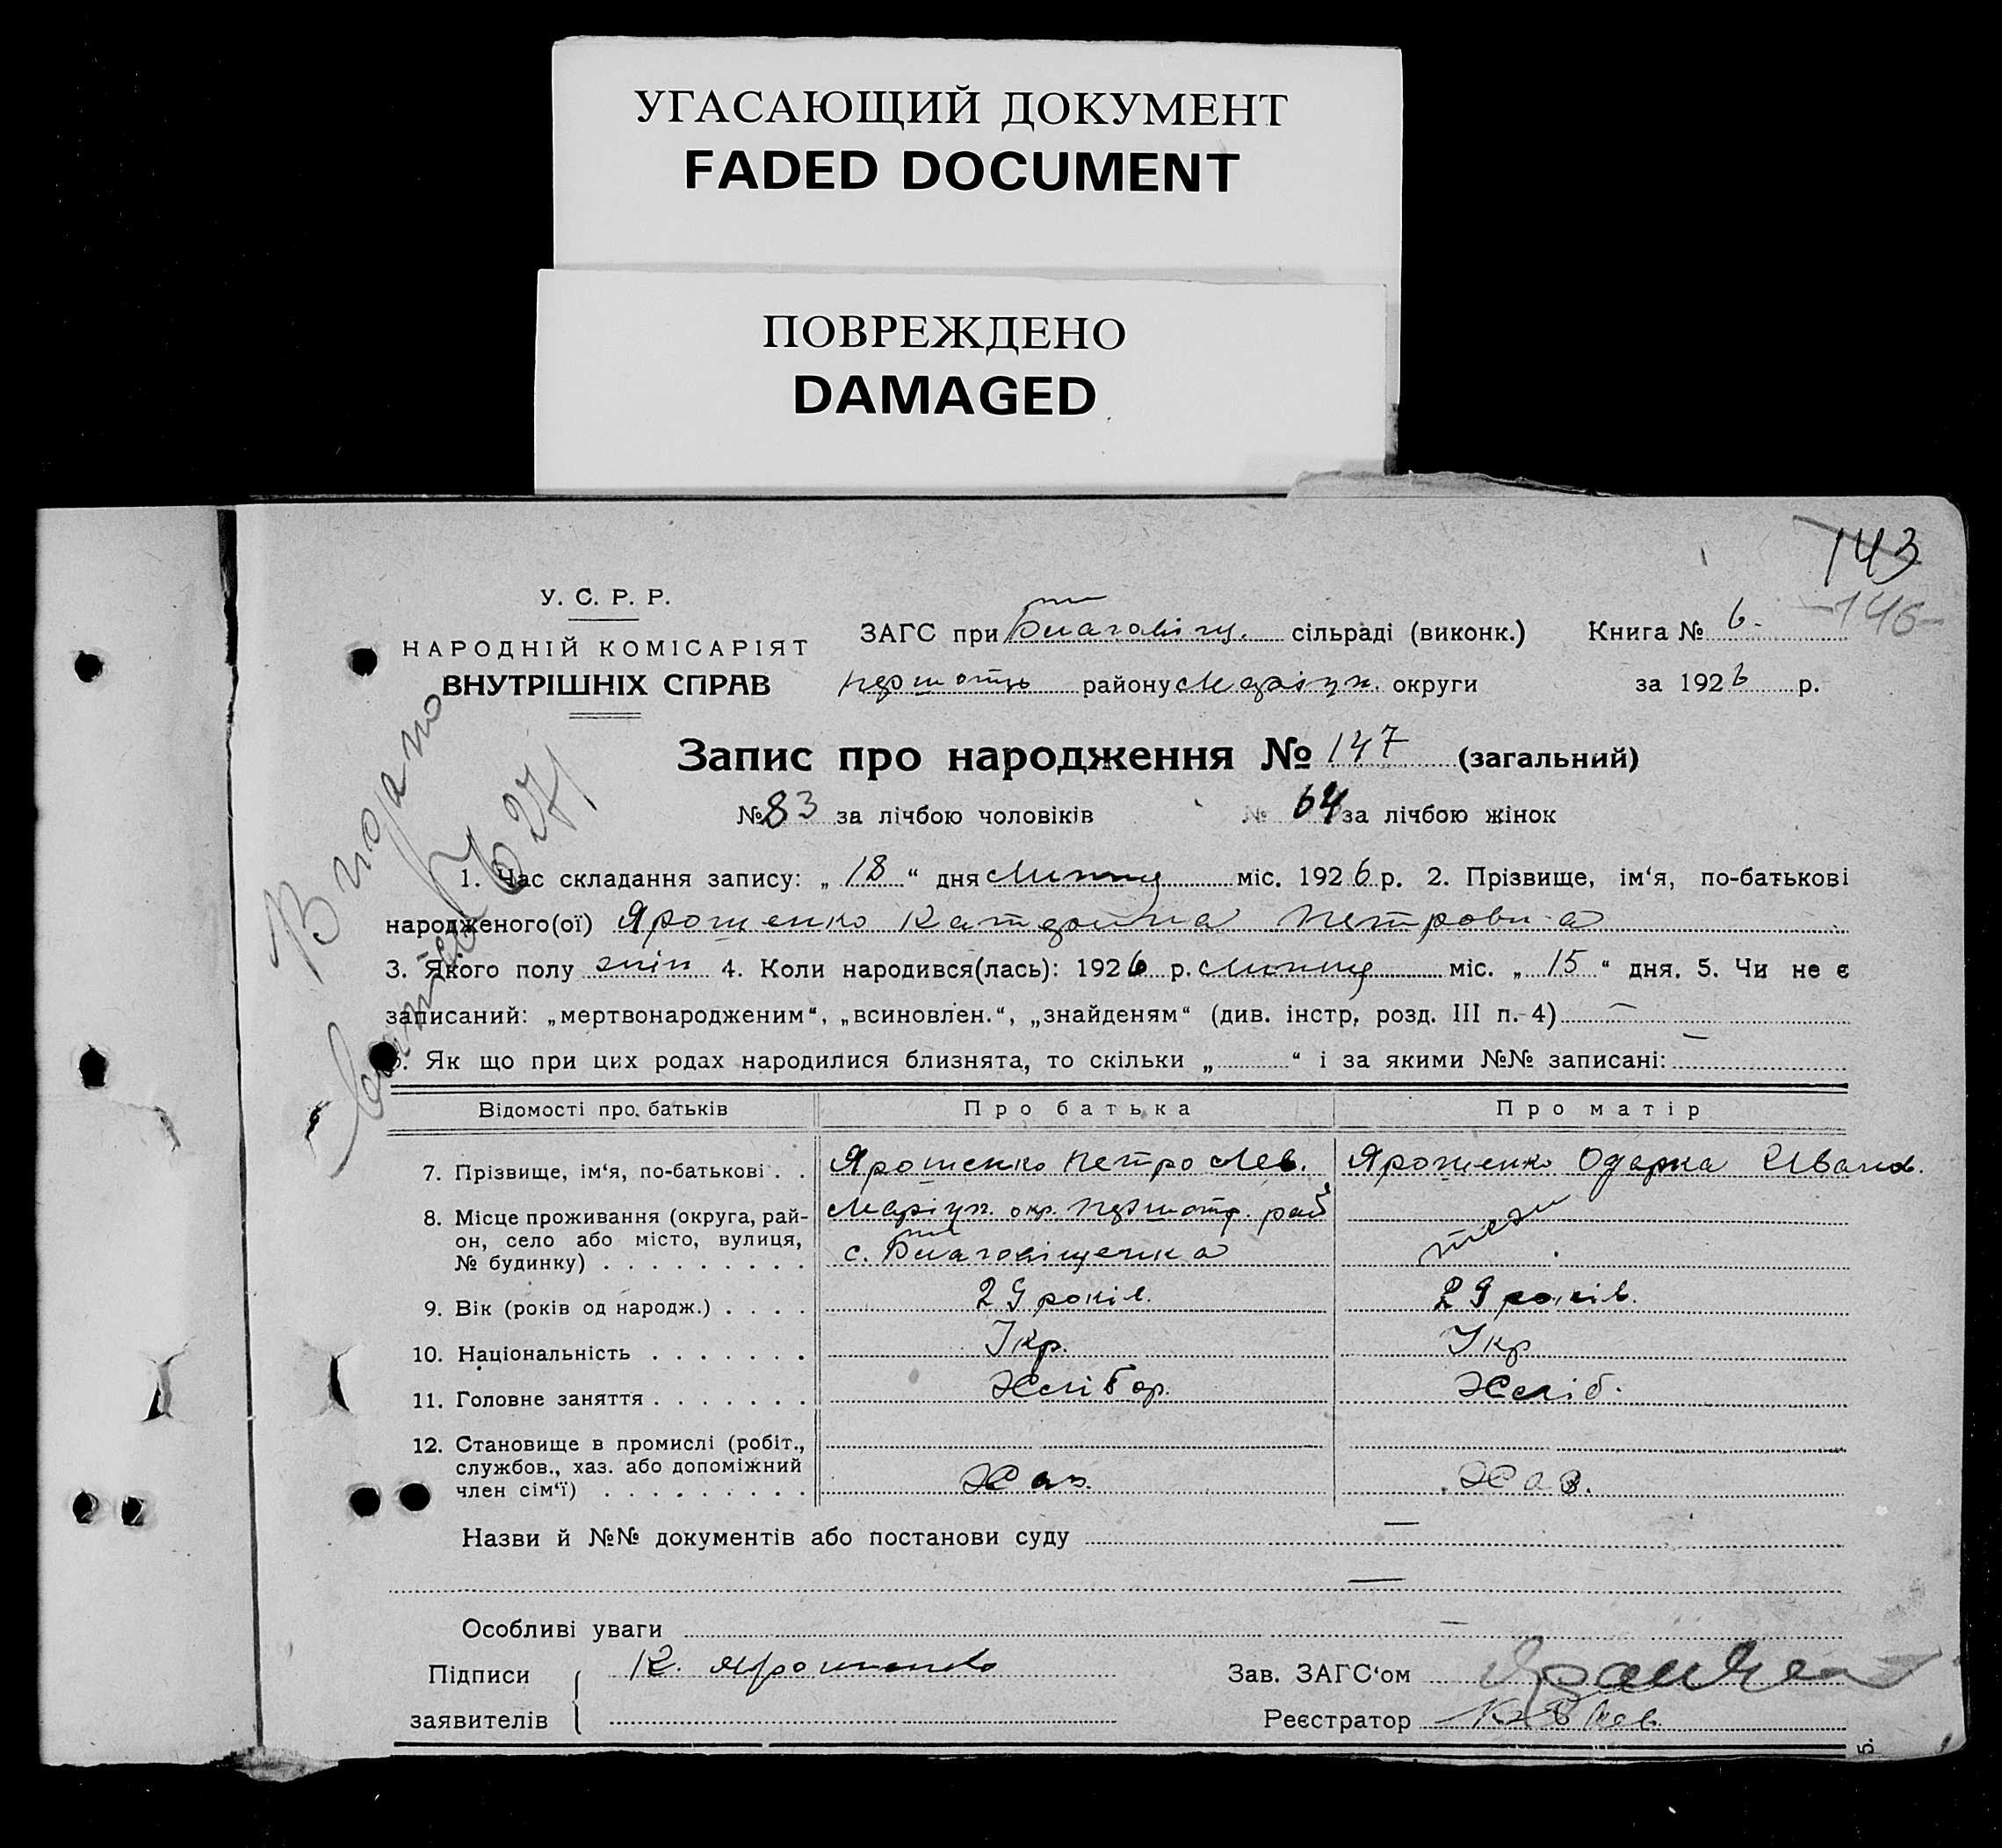 УГАСАЮЩИЙ ДОКУМЕНТ
FADED DOCUMENT
ПОВРЕЖДЕНО
DAMAGED
143
146-
У. С. Р. Р.
НАРОДНІЙ КОМІСАРІЯТ
ВНУТРІШНІХ СПРАВ
ЗАГС при Благовіщ. сільраді (виконк.) Книга № 6.
району Маріуп. округи за 1926 р.
Видано
Запис про народження № 147 (загальний)
№ 83 за лічбою чоловіків № 64 за лічбою жінок
1. Час складання запису: „ 18 “ дня Липня міс. 1926 р. 2. Прізвище, ім‘я, по-батькові
народженого(ої) Ярошенко Катерина Петровна
3. Якого полу жін 4. Коли народився(лась): 1926 р. Липня міс. „ 15 “ дня. 5. Чи не є
записаний: „мертвонародженим“, „всиновлен.“, „знайденям“ (див. інстр. розд. III п. 4) —
6. Як що при цих родах народилися близнята, то скільки „ “ і за якими №№ записані: —
Відомості про батьків Про батька Про матір
7. Прізвище, ім‘я, по-батькові . . Ярошенко Петро Лев. Ярошенко Одарка Иванов.
8. Місце проживання (округа, рай- Маріуп. окр. рай
он, село або місто, вулиця, с. Благовіщенка теж
№ будинку) . . . . . . . . .
9. Вік (років од народж.) . . . . 29 років. 29 років.
10. Національність . . . . . . . Укр. Укр
11. Головне заняття . . . . . . . Хлібор. Хліб.
12. Становище в промислі (робіт.,
службов., хаз. або допоміжний
член сім‘ї) . . . . . . . . . Хаз. Хаз.
Назви й №№ документів або постанови суду —
—
Особливі уваги —
Підписи К. Ярошенко Зав. ЗАГС‘ом
заявителів Реєстратор